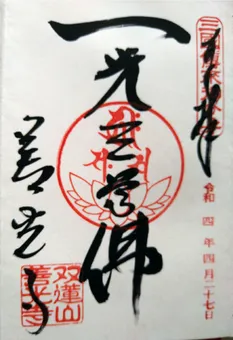 奉拝
令和四年四月二十七日
一光三尊佛
善光寺
双蓮山
善光寺